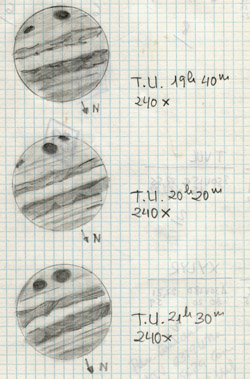 T.U. 19h 40m
240x
N
T.U. 20h 20m
240x
N
T.U. 21h 30m
240x
N